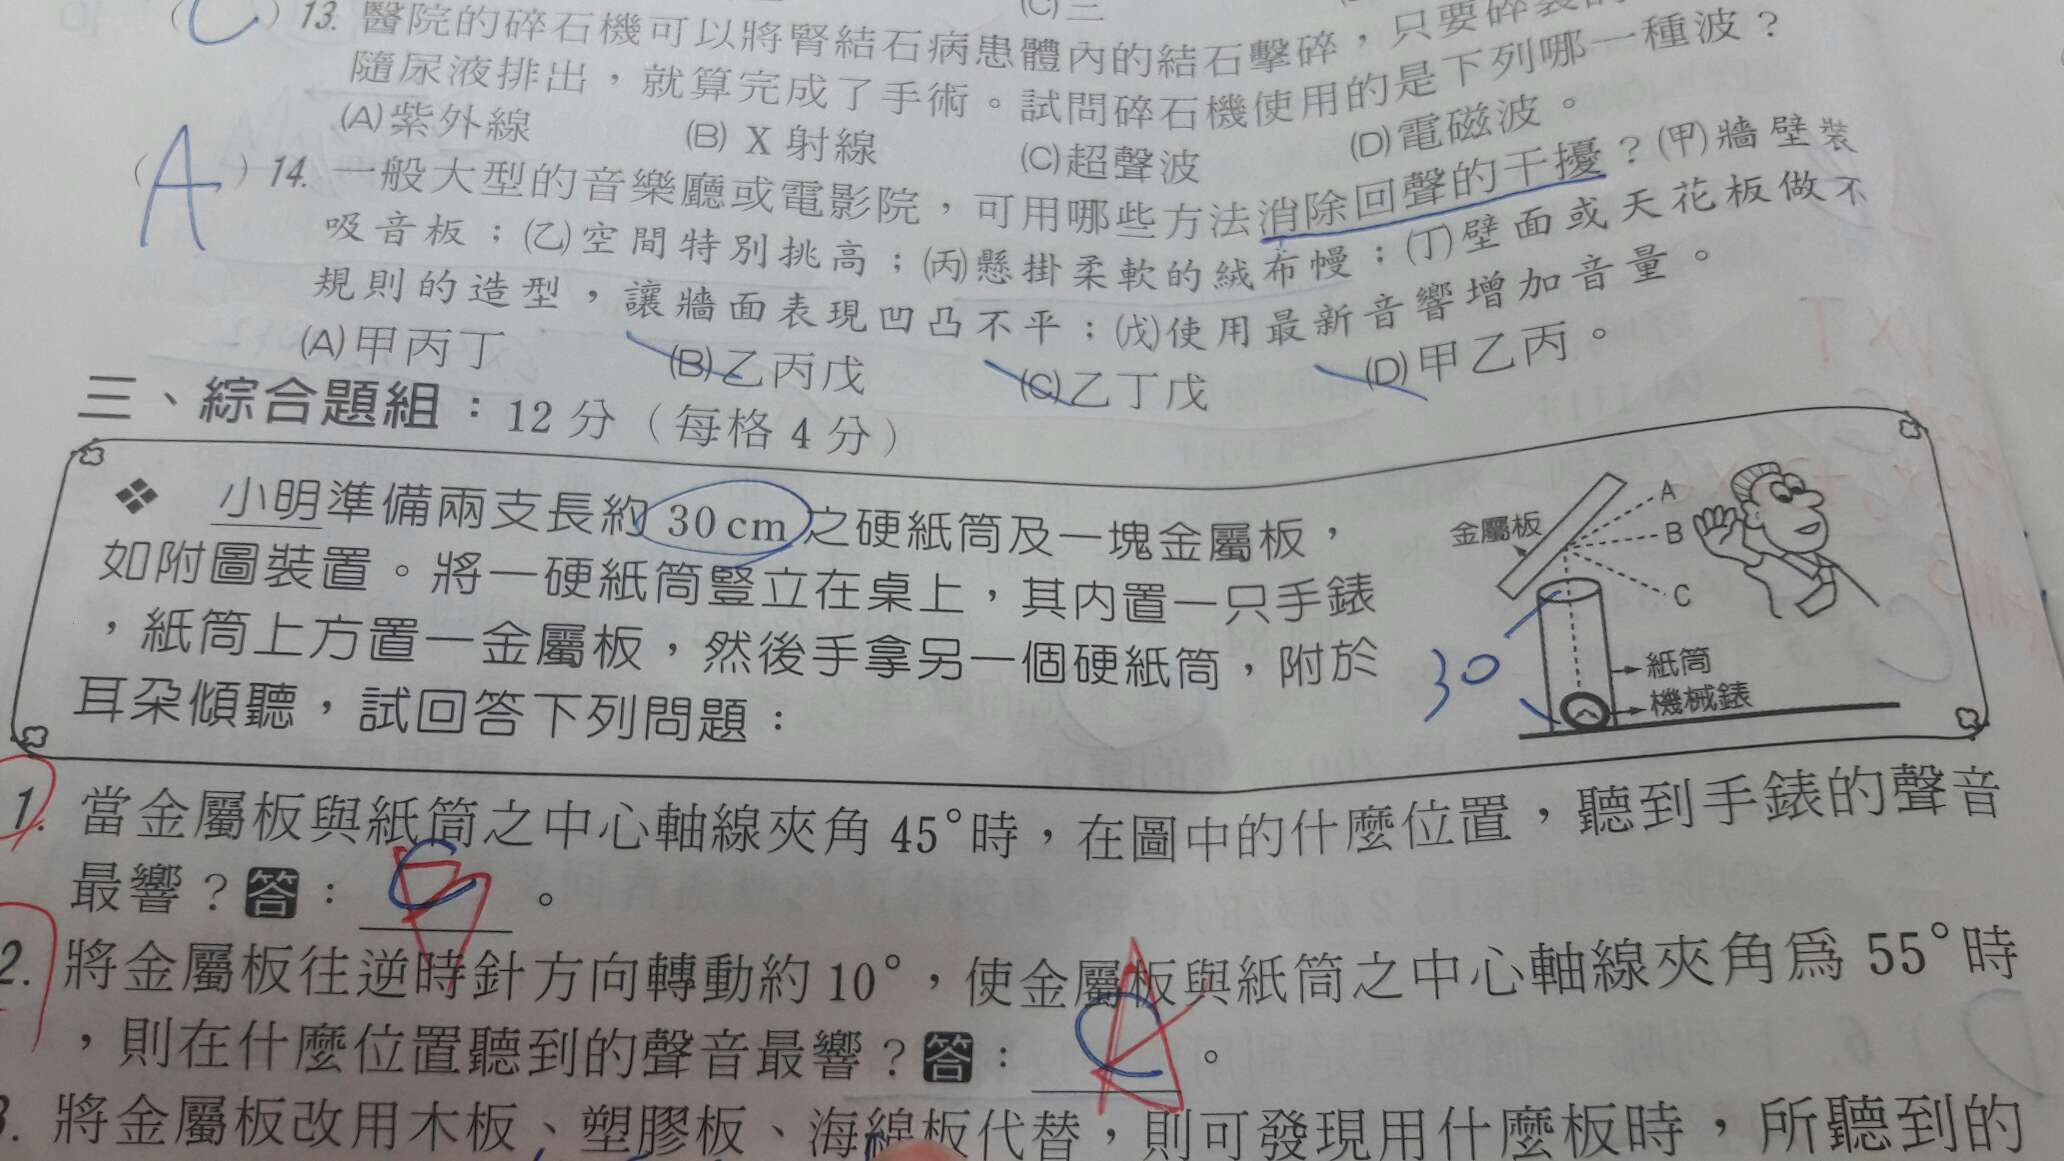 (C)三
( C ) 13. 醫院的碎石機可以將腎結石病患體內的結石擊碎，只要碎裂的
隨尿液排出，就算完成了手術。試問碎石機使用的是下列哪一種波？
(A)紫外線 (B) X 射線 (C)超聲波 (D)電磁波。
( A ) 14. 一般大型的音樂廳或電影院，可用哪些方法消除回聲的干擾？(甲)牆壁裝
吸音板；(乙)空間特別挑高；(丙)懸掛柔軟的絨布幔；(丁)壁面或天花板做不
規則的造型，讓牆面表現凹凸不平；(戊)使用最新音響增加音量。
(A)甲丙丁 (B)乙丙戊 (C)乙丁戊 (D)甲乙丙。
三、綜合題組：12 分（每格 4 分）
❖ 小明準備兩支長約 30 cm 之硬紙筒及一塊金屬板，
如附圖裝置。將一硬紙筒豎立在桌上，其內置一只手錶
，紙筒上方置一金屬板，然後手拿另一個硬紙筒，附於
耳朵傾聽，試回答下列問題：
金屬板
A
B
C
30
紙筒
機械錶
1. 當金屬板與紙筒之中心軸線夾角 45°時，在圖中的什麼位置，聽到手錶的聲音
最響？答：C B。
2. 將金屬板往逆時針方向轉動約 10°，使金屬板與紙筒之中心軸線夾角為 55°時
，則在什麼位置聽到的聲音最響？答：C A。
3. 將金屬板改用木板、塑膠板、海綿板代替，則可發現用什麼板時，所聽到的